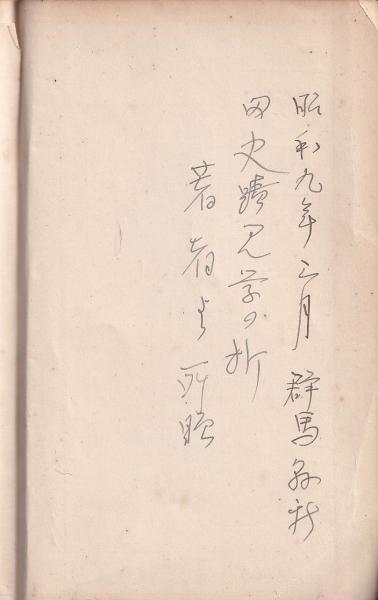 昭和九年三月群馬縣新
田史蹟見学の折
著者より所贈